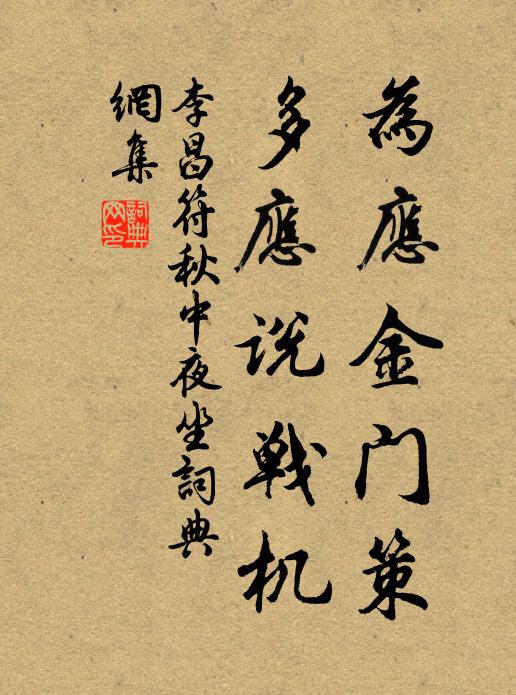 為應金门策
多應说戰机
李昌符秋中夜坐詞典
網集
詞典
网印